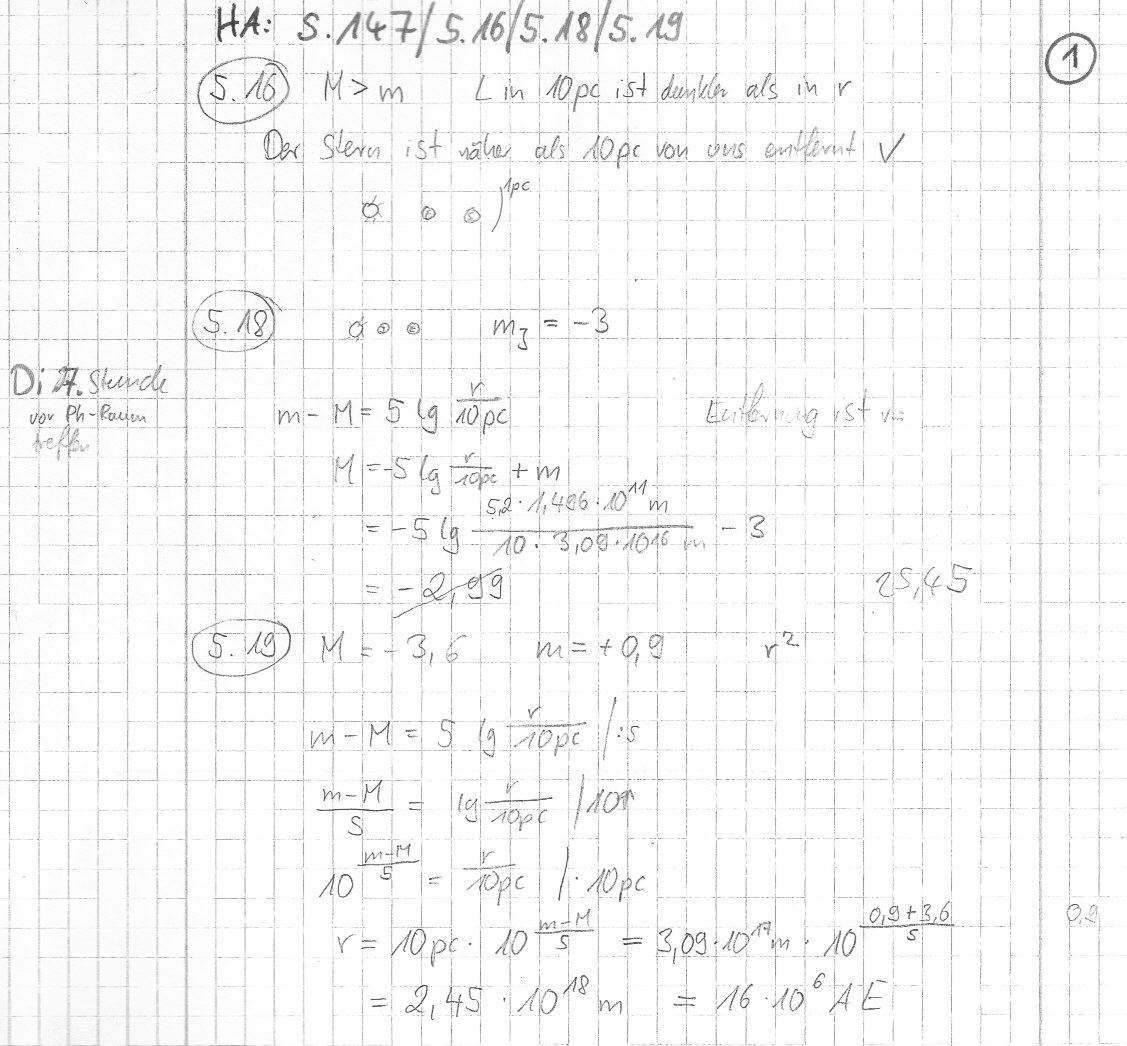 HA: S.147/5.16/5.18/5.19
1
5.16 M > m L in 10pc ist dunkler als in r
Der Stern ist näher als 10pc von uns entfernt ✓
1pc
5.18 m_J = -3
Di 7. Stunde
vor Ph-Raum
treffen
m - M = 5 lg r/10pc Entfernung ist r=
M = -5 lg r/10pc + m
= -5 lg (5,2 · 1,496 · 10^11 m)/(10 · 3,09 · 10^16 m) - 3
= -2,99 25,45
5.19 M = -3,6 m = +0,9 r²
m - M = 5 lg r/10pc /:5
(m-M)/5 = lg r/10pc /10^
10^((m-M)/5) = r/10pc /· 10pc
r = 10pc · 10^((m-M)/5) = 3,09 · 10^17 m · 10^((0,9+3,6)/5) 0,9
= 2,45 · 10^18 m = 16 · 10^6 AE